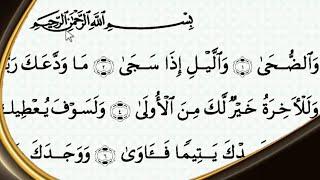 بِسْمِ ٱللَّهِ ٱلرَّحْمَٰنِ ٱلرَّحِيمِ
وَٱلضُّحَىٰ ١ وَٱلَّيْلِ إِذَا سَجَىٰ ٢ مَا وَدَّعَكَ
وَلَلْآخِرَةُ خَيْرٌ لَّكَ مِنَ ٱلْأُولَىٰ ٤ وَلَسَوْفَ يُعْطِيكَ
يَتِيمًا فَـَٔاوَىٰ ٦ وَوَجَدَكَ